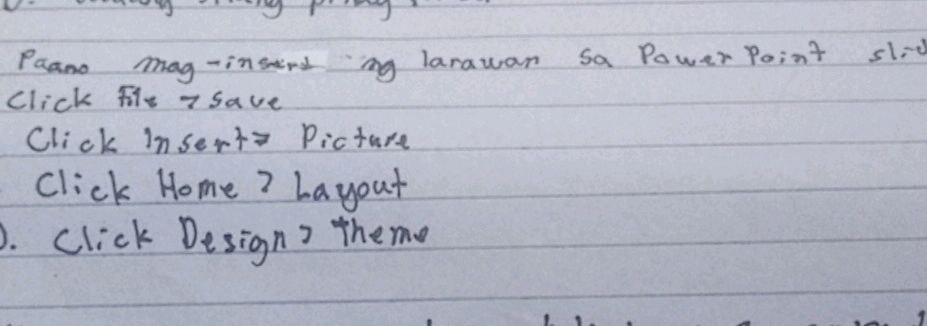 Paano mag-insert ng larawan sa PowerPoint
Click File > Save
Click Insert > Picture
Click Home > Layout
D. Click Design > Theme